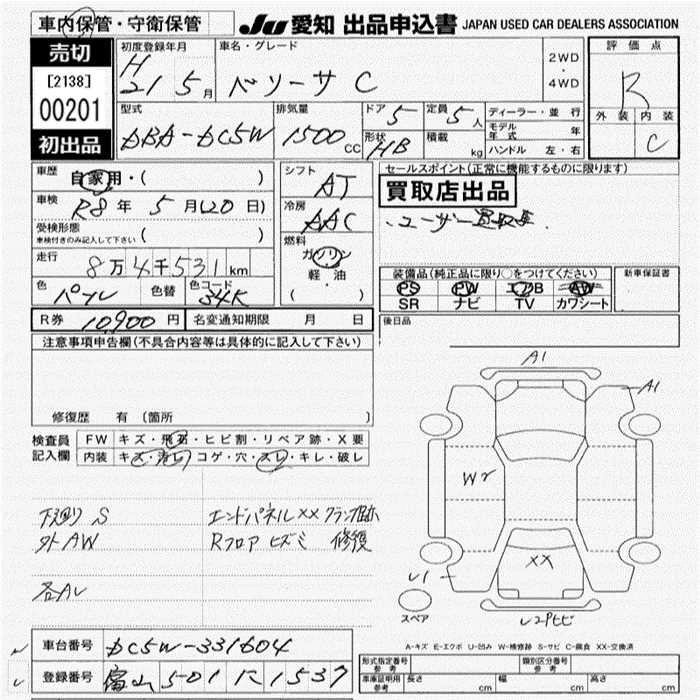 車内保管・守衛保管
JU 愛知 出品申込書 JAPAN USED CAR DEALERS ASSOCIATION
売切
[2138]
00201
初出品
初度登録年月
H 21 5月
車名・グレード
ベリーサ C
2WD
・
4WD
評価点
R
外装 内装
C
型式
DBA-DC5W
排気量
1500 CC
ドア 5
定員 5人
形状 HB
積載 kg
ディーラー・並行
モデル年式 年
ハンドル 左・右
車歴
自家用・( )
車検
R8年 5月(20日)
受検形態
車検付きのみ記入して下さい ( )
走行
8万4千531km
色
パープル
色替
色コード
34K
シフト
AT
冷房
AAC
燃料
ガソリン
軽・油
・( )
セールスポイント(正常に機能するものに限ります)
買取店出品
・ユーザー買取車
装備品(純正品に限り○をつけてください)
PS PW エアB AW
SR ナビ TV カワシート
新車保証書
R券 10,900円
名変通知期限 月 日
後日品
注意事項申告欄(不具合内容等は具体的に記入して下さい)
修復歴 有 [箇所 ]
検査員記入欄
FW キズ・飛石・ヒビ割・リペア跡・X要
内装 キズ・汚レ・コゲ・穴・スレ・キレ・破レ
下廻り S
外AW
エンドパネルXX
Rフロア ヒズミ 修復
A1
A1
W2
XX
U1
スペア
A-キズ E-エクボ U-凹み W-補修跡 S-サビ C-腐食 XX-交換済
車台番号 DC5W-331604
登録番号 富山 501 に 1537
形式指定番号 参考
類別区分番号 参考
車庫証明用 参考
長さ cm
幅 cm
高さ cm